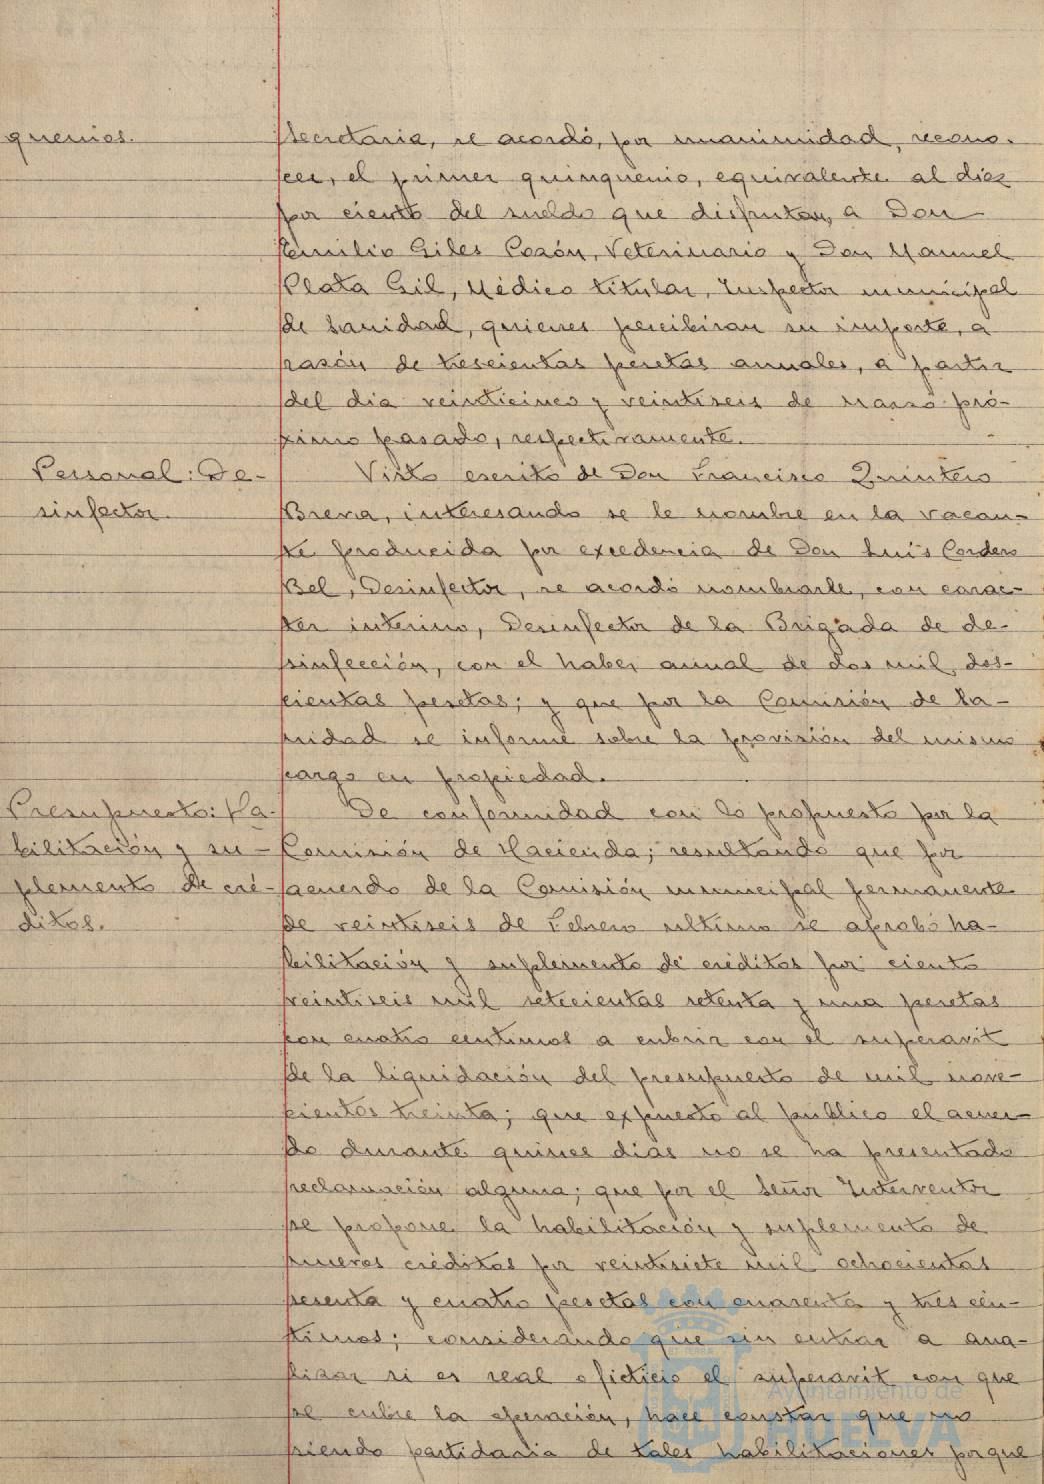 quenios.
Secretaria, se acordó, por unanimidad, recono-
cer, el primer quinquenio, equivalente al diez
por ciento del sueldo que disfrutan, a Don
Emilio Giles Pozón, Veterinario y Don Manuel
Plata Gil, Médico titular, Inspector municipal
de Sanidad, quienes percibiran su importe, a
razón de trescientas pesetas anuales, a partir
del dia veinticinco y veintiseis de Marzo pró-
ximo pasado, respectivamente.
Personal: De-
sinfector.
Visto escrito de Don Francisco Quintero
Breva, interesando se le nombre en la vacan-
te producida por excedencia de Don Luis Cordero
Bel, Desinfector, se acordó nombrarle, con carac-
ter interino, Desinfector de la Brigada de de-
sinfección, con el haber anual de dos mil dos-
cientas pesetas; y que por la Comisión de Sa-
nidad se informe sobre la provisión del mismo
cargo en propiedad.
Presupuesto: Ha-
bilitación y su-
plemento de cré-
ditos.
De conformidad con lo propuesto por la
Comisión de Hacienda; resultando que por
acuerdo de la Comisión municipal permanente
de veintiseis de Febrero ultimo se aprobó ha-
bilitación y suplemento de créditos por ciento
veintiseis mil setecientas setenta y una pesetas
con cuatro centimos a cubrir con el superavit
de la liquidación del presupuesto de mil nove-
cientos treinta; que expuesto al público el acuer-
do durante quince dias no se ha presentado
reclamación alguna; que por el Señor Interventor
se propone la habilitación y suplemento de
nuevos créditos por veintisiete mil ochocientas
sesenta y cuatro pesetas con cuarenta y tres cén-
timos; considerando que sin entrar a ana-
lizar si es real o ficticio el superavit con que
se cubre la operación, hace constar que no
siendo partidaria de tales habilitaciones porque
Ayuntamiento de
HUELVA